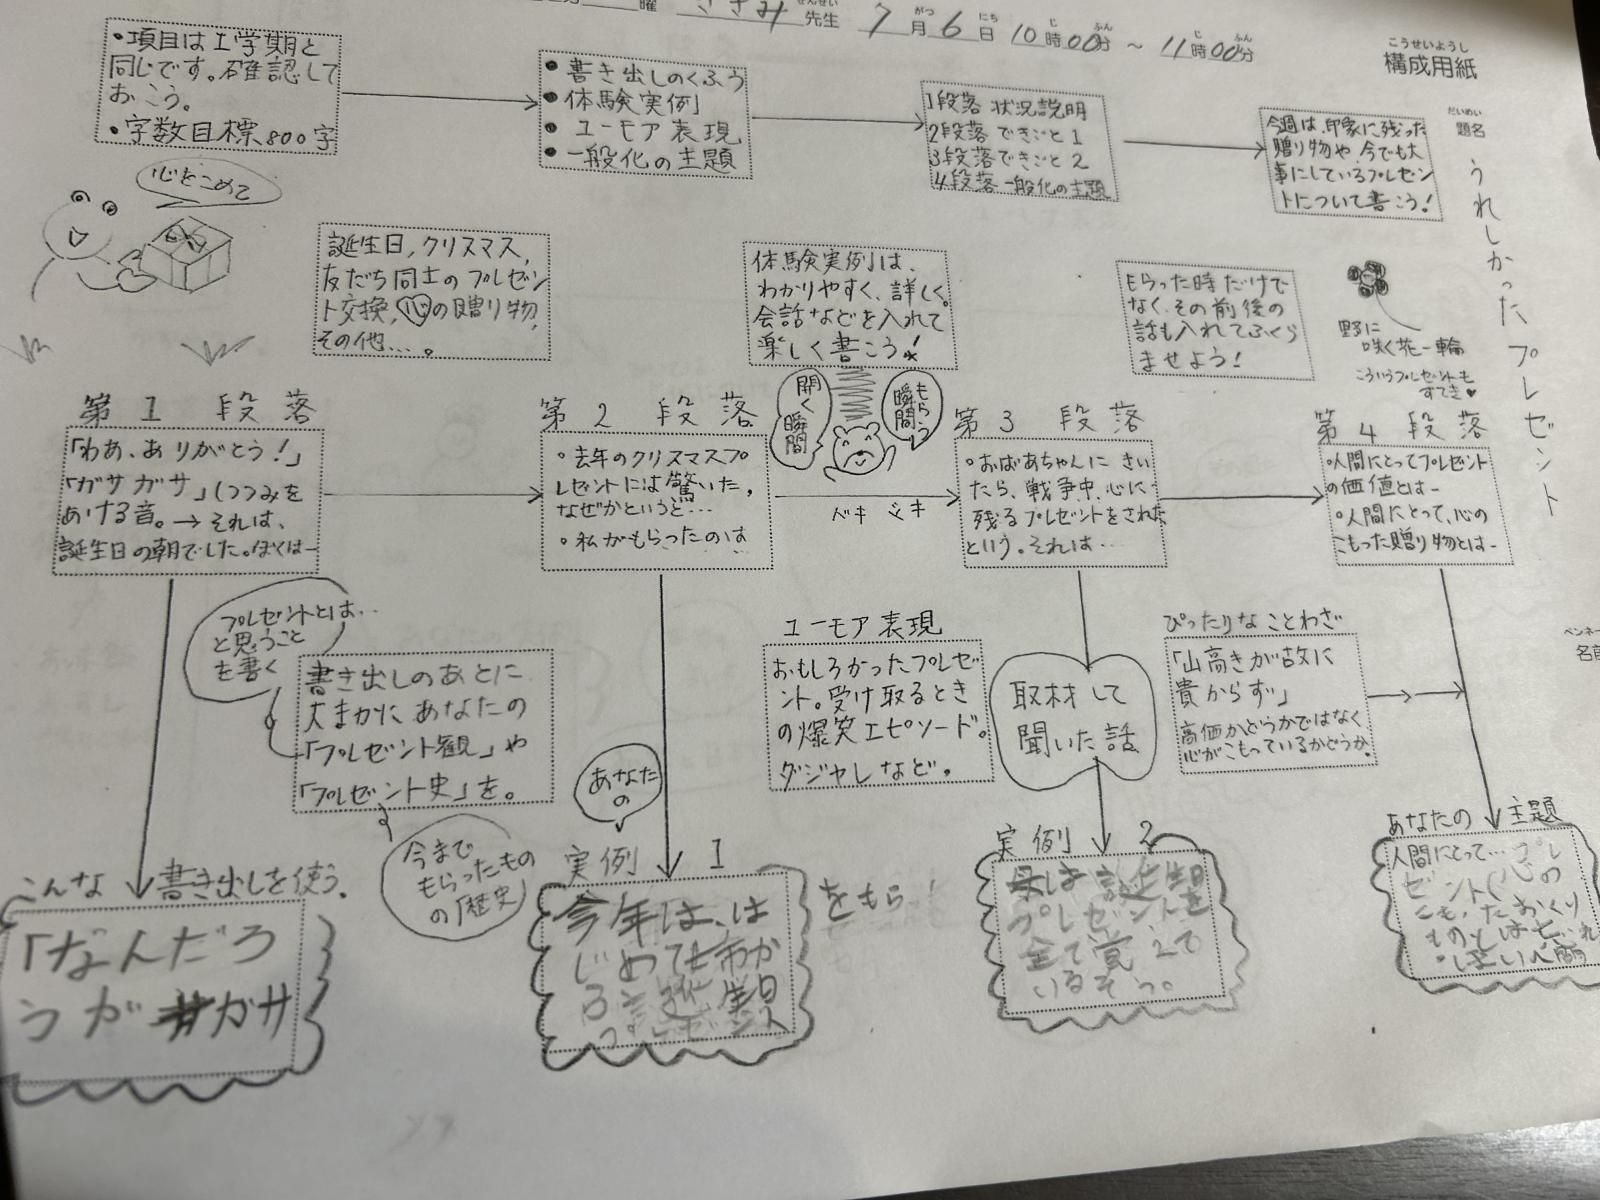 曜 先生 7月6日10時00分～11時00分
がつ にち じ ふん じ ふん
せんせい
こうせいようし
構成用紙
だいめい
題名
うれしかったプレゼント
・項目は1学期と
同じです。確認して
おこう。
・字数目標800字
・書き出しのくふう
・体験実例
・ユーモア表現
・一般化の主題
1段落 状況説明
2段落 できごと1
3段落 できごと2
4段落 一般化の主題
今週は、印象に残った
贈り物や、今でも大
事にしているプレゼン
トについて書こう!
心をこめて
誕生日,クリスマス,
友だち同士のプレゼン
ト交換,心の贈り物,
その他…。
体験実例は、
わかりやすく、詳しく。
会話などを入れて
楽しく書こう!
もらった時だけで
なく、その前後の
話も入れてふくら
ませよう!
野に
咲く花一輪
こういうプレゼントも
すてき♥
第1段落
「わあ、ありがとう!」
「ガサガサ」(つつみを
あける音。→それは、
誕生日の朝でした。ぼくは―
第2段落
・去年のクリスマスプ
レゼントには驚いた,
なぜかというと…
・私がもらったのは
開く瞬間
もらう瞬間
ドキドキ
第3段落
・おばあちゃんにきい
たら、戦争中、心に
残るプレゼントをされた
という。それは…
第4段落
・人間にとってプレゼント
の価値とは―
・人間にとって、心の
こもった贈り物とは―
プレゼントとは…
と思うこと
を書く
書き出しのあとに
大まかにあなたの
「プレゼント観」や
「プレゼント史」を。
今まで
もらったもの
の「歴史」
ユーモア表現
おもしろかったプレゼ
ント。受け取るとき
の爆笑エピソード。
ダジャレなど。
取材して
聞いた話
ぴったりなことわざ
「山高きが故に
貴からず」
高価かどうかではなく
心がこもっているかどうか。
ペンネー
名前
こんな書き出しを使う。
「なんだろ
うが ガサ
あなたの
実例 1
今年は、は
じめて
をもら
実例 2
母は誕生日
プレゼントを
全て覚えて
いるそう。
あなたの主題
人間にとって…プレ
ゼント(心の
こもったおくり
ものとは